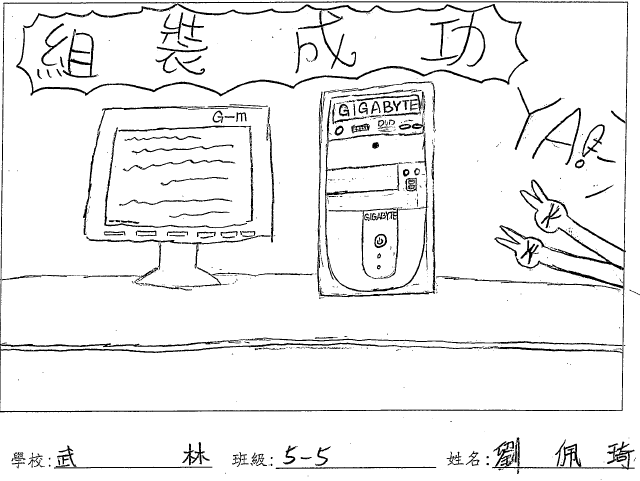 組裝成功
G-m
GIGABYTE
DVD
GIGABYTE
YA!
學校:武林 班級:5-5 姓名:劉佩琦